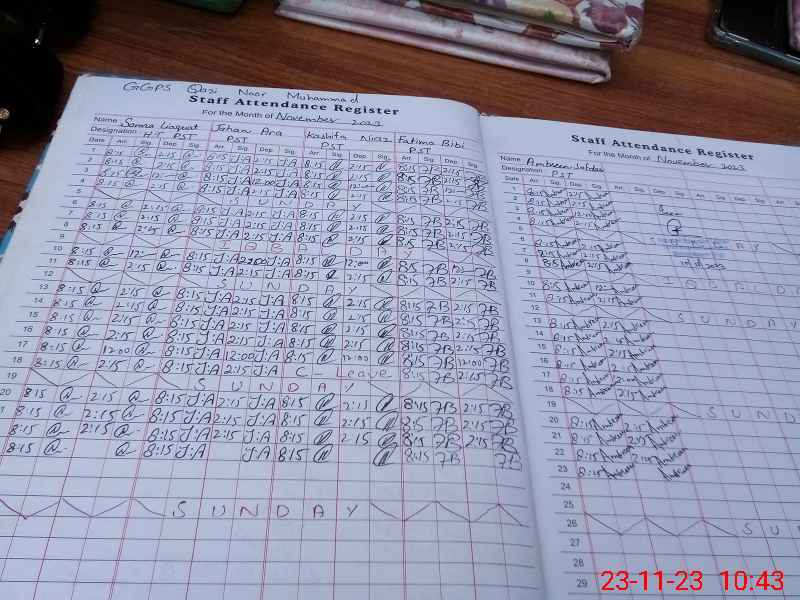 GGPS Qazi Noor Muhammad
Staff Attendance Register
For the Month of November 2023
Name Samra Liaquat Jehan Ara Kashifa Niaz Fatima Bibi
Designation H.T PST PST PST PST
Date Arr. Sig. Dep. Sig. Arr. Sig. Dep. Sig. Arr. Sig. Dep. Sig. Arr. Sig. Dep. Sig.
1 8:15 2:15 8:15 J.A 2:15 J.A 8:15 2:15 8:15 FB 2:15 FB
2 8:15 2:15 8:15 J.A 2:15 J.A 8:15 2:15 8:15 FB 2:15 FB
3 8:15 12:00 8:15 J.A 12:00 J.A 8:15 12:00 8:15 FB FB
4 8:15 2:15 8:15 J.A 2:15 J.A 8:15 2:15 8:15 FB 2:15 FB
5 SUNDAY
6 8:15 2:15 8:15 J.A 2:15 J.A 8:15 2:15 8:15 FB 2:15 FB
7 8:15 2:15 8:15 J.A 2:15 J.A 8:15 2:15 8:15 FB 2:15 FB
8 8:15 2:15 8:15 J.A 2:15 J.A 8:15 2:15 8:15 FB 2:15 FB
9 IQBAL DAY
10 8:15 12:00 8:15 J.A 12:00 J.A 8:15 12:00 8:15 FB 12:00 FB
11 8:15 2:15 8:15 J.A 2:15 J.A 8:15 2:15 8:15 FB 2:15 FB
12 SUNDAY
13 8:15 2:15 8:15 J.A 2:15 J.A 8:15 2:15 8:15 FB 2:15 FB
14 8:15 2:15 8:15 J.A 2:15 J.A 8:15 2:15 8:15 FB 2:15 FB
15 8:15 2:15 8:15 J.A 2:15 J.A 8:15 2:15 8:15 FB 2:15 FB
16 8:15 2:15 8:15 J.A 2:15 J.A 8:15 2:15 8:15 FB 2:15 FB
17 8:15 12:00 8:15 J.A 12:00 J.A 8:15 12:00 8:15 FB 12:00 FB
18 8:15 2:15 8:15 J.A 2:15 J.A C-Leave 8:15 FB 2:15 FB
19 SUNDAY
20 8:15 2:15 8:15 J.A 2:15 J.A 8:15 2:15 8:15 FB 2:15 FB
8:15 2:15 8:15 J.A 2:15 J.A 8:15 2:15 8:15 FB 2:15 FB
8:15 2:15 8:15 J.A 2:15 J.A 8:15 2:15 8:15 FB 2:15 FB
8:15 8:15 J.A J.A 8:15 8:15 FB FB
SUNDAY
Staff Attendance Register
For the Month of November 2023
Name Ambreen Safdar
Designation PST
Date Arr. Sig. Dep. Sig. Arr. Sig. Dep. Sig. Arr. Sig. Dep. Sig.
1 8:15 2:15
2 8:15 2:15
3 8:15 12:00
4 8:15 2:15
Seen
5 SUNDAY
6 8:15 2:15
7 8:15 2:15
8 8:15 2:15
9 IQBAL D
10 8:15 12:00
11 8:15 2:15
12 SUNDAY
13 8:15 2:15
14 8:15 2:15
15 8:15 2:15
16 8:15 2:15
17 8:15 12:00
18 8:15 2:15
19 SUND
20 8:15 2:15
21 8:15 2:15
22 8:15 2:15
23 8:15
24
25
26 SU
27
28
29
23-11-23 10:43